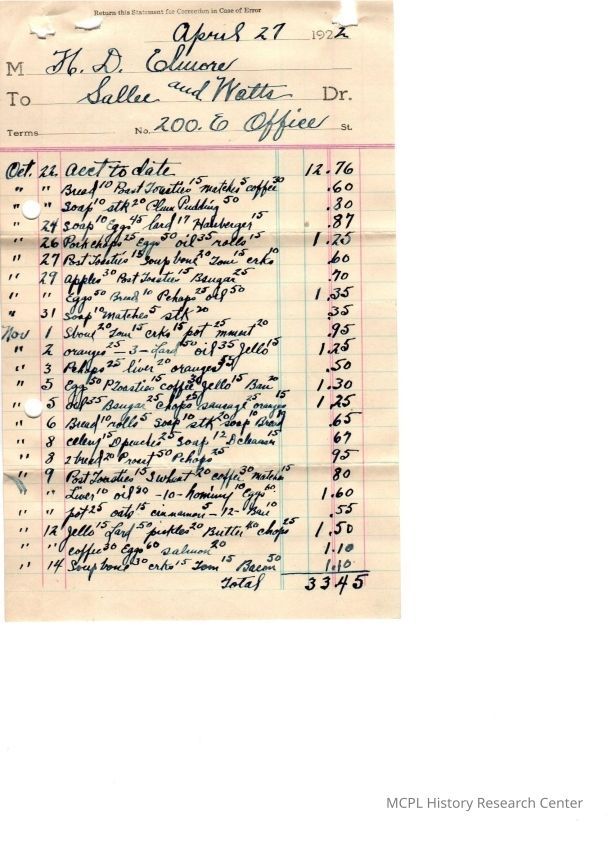 Return this Statement for Correction in Case of Error
April 27 1922
M H. D. Elmore
To Sallee and Watts Dr.
Terms No. 200. E Office St.
Oct. 22. acct to date 12.76
" " Bread 10 Post Toasties 15 matches 5 coffee 30 .60
" " Soap 10 stk 20 Plum Pudding 50 .80
" 24 Soap 10 Eggs 45 lard 17 Hamberger 15 .87
" 26 Pork chops 25 Eggs 50 oil 35 rolls 15 1.25
" 27 Post Toasties 15 Soup bone 20 Tom 15 crks 10 .60
" 29 apples 30 Post Toasties 15 Bsugar 25 .70
" " Eggs 50 Bread 10 Pchops 25 oil 50 1.35
" 31 Soap 10 matches 5 stk 20 .35
Nov 1 Sbone 20 Tom 15 crks 15 pot 25 mment 20 .95
" 2 oranges 25 - 3 - Lard 50 oil 35 Jello 15 1.25
" 3 Pchops 25 liver 20 oranges .50
" 5 Eggs 50 PToasties coffee 30 Jello 15 Ban 20 1.30
" 5 oil 35 Bsugar 25 chops 25 sausage 25 oranges 1.25
" 6 Bread 10 rolls 5 Soap 10 stk 20 soap 10 Bread .65
" 8 celery 15 Dpeaches 25 Soap 12 Dcleanser 15 67
" 8 2 bread 20 P roast 50 Pchops 25 95
" 9 Post Toasties 15 S wheat 20 coffee 30 matches 15 80
" " Liver 10 oil - 10 - hominy 10 Eggs 60 1.60
" " pot 25 oats 15 cinnamon 5 - 12 - Ban 10 .55
" 12 Jello 15 Lard 50 pickles 20 Butter 40 chops 25 1.50
" " coffee 30 Eggs 60 salmon 20 1.10
" 14 Soup bone 30 crks 15 Tom 15 Bacon 50 1.10
Total 33.45
MCPL History Research Center